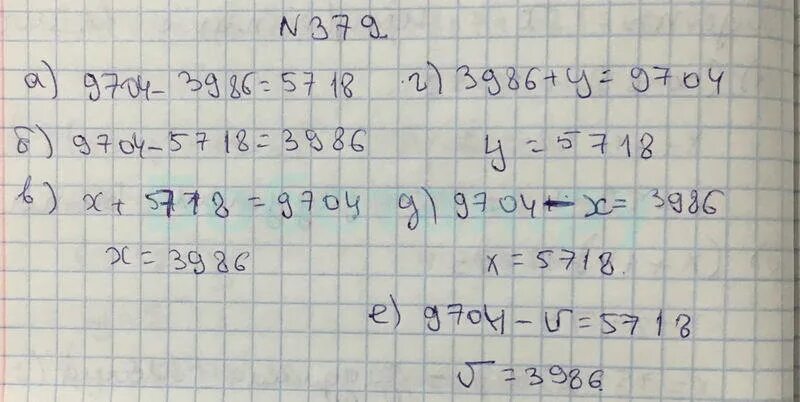 N 379
а) 9704 - 3986 = 5718 г) 3986 + y = 9704
б) 9704 - 5718 = 3986 y = 5718
в) x + 5718 = 9704 д) 9704 - x = 3986
x = 3986 x = 5718.
е) 9704 - v = 5718
v = 3986